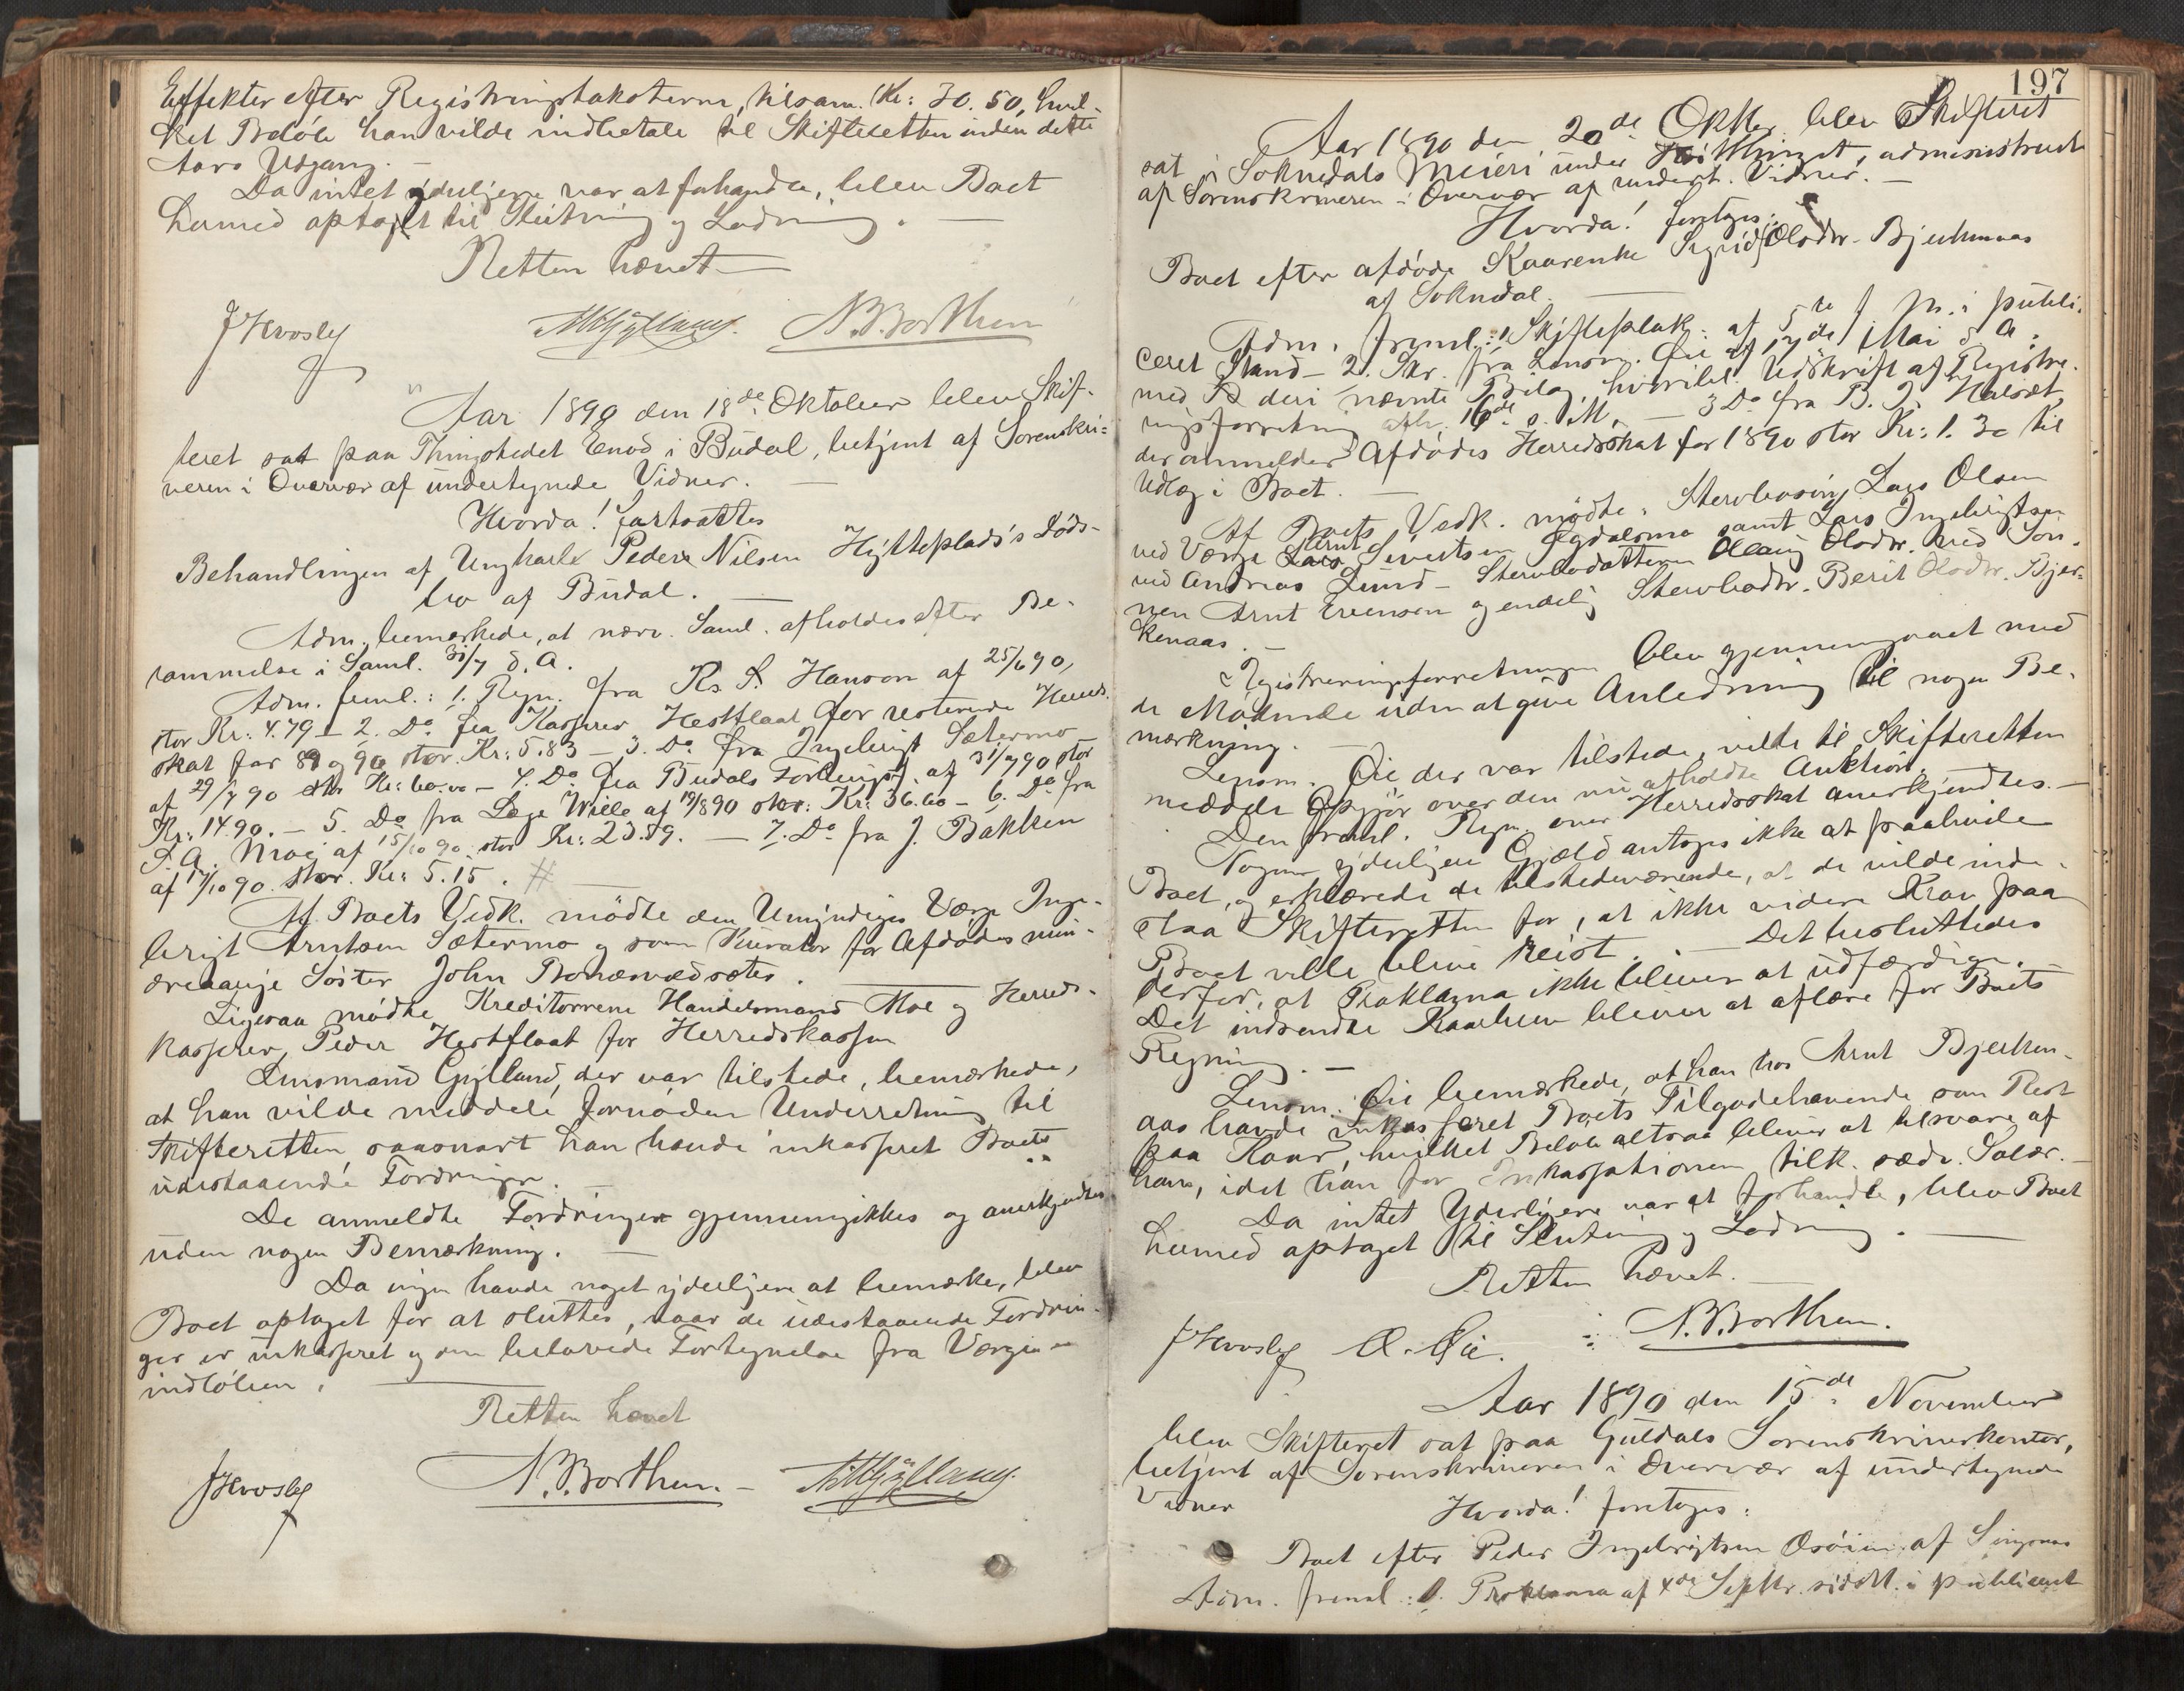 Effekter efter Registreringstaksterne, tilsam. Kr: 30.50, hvil-
ket Beløb han vilde indbetale til Skifteretten inden dette
Aars Udgang. —
Da intet yderligere var at forhandle, blev Boet
hermed optaget til Slutning og Lodning. —
Retten hævet —
JHvosley AMGylland. N. P. Borthen
Aar 1890 den 18de Oktober blev Skif-
teret sat paa Thingstedet Enod i Budal, betjent af Sorenskri-
veren i Overvær af undertegnede Vidner. —
Hvorda! fortsattes
Behandlingen af Ungkarl Peder Nilsen Hytteplads's Døds-
bo af Budal. —
Adm. bemærkede, at nærv. Saml. afholdes efter Be-
rammelse i Saml. 31/7 d. A.
Adm. freml.: 1. Regn. fra Rs. S. Hanson af 25/6 90,
stor Kr: 4.79 — 2. Do fra Kasserer Hestflaat for resterende Herreds-
skat for 89 og 90 stor Kr: 5.83 — 3. Do fra Ingebrigt Sætermo
af 29/7 90 stor Kr: 60.00 — 4. Do fra Budals Forligsk. af 31/7 90 stor
Kr: 14.90. — 5. Do fra Læge Wille af 19/8 90 stor: Kr: 36.60 — 6. Do fra
P. A. Moe af 15/10 90 stor Kr: 23.59. — 7. Do fra J. Bakken
af 17/10 90. stor. Kr: 5.15. #
Af Boets Vedk. mødte den Umyndiges Værge Inge-
brigt Arntsen Sætermo og som Kurator for Afdødes min-
dreaarige Søster John
Ligesaa mødte Kreditorerne Handelsmand Moe og Herreds-
kasserer Peder Hestflaat for Herredskassen
Lensmand Gylland, der var tilstede, bemærkede,
at han vilde meddele fornøden Underretning til
Skifteretten saasnart han havde inkasseret Boets
udestaaende Fordringer. —
De anmeldte Fordringer gjennemgikkes og anerkjendtes
uden nogen Bemærkning. —
Da ingen havde noget yderligere at bemærke, blev
Boet optaget for at sluttes, naar de udestaaende Fordrin-
ger er inkasseret og den belovede Fortegnelse fra Værgen
indløben. —
Retten hævet
JHvosley N. P. Borthen. — AMGylland.
197
Aar 1890 den 20de Oktbr. blev Skifteret
sat i Soknedals Meieri under Høstthinget, administreret
af Sorenskriveren i Overvær af undert. Vidner. —
Hvorda! foretoges:
Boet efter afdøde Kaarenke Sigrid Olsdtr. Bjerkenaas
af Soknedal. —
Adm. freml.: 1. Skifteplak. af 5te f. M. i publi-
ceret Stand — 2. Skr. fra Lensm. Øie af 17de Mai d. A.
med deri nævnte Bilag, hvoriblt. Udskrift af Registre-
ringsforretning afh. 16de s. M. — 3 Do fra B. J. Halset,
der anmelder Afdødes Herredsskat for 1890 stor Kr: 1.30 til
Udlæg i Boet. —
Af Boets Vedk. mødte: Stervbosøn Lars Olsen
ved Værge Arnt Sivertsen samt Lars Ingebrigtsen
ved Andreas Lund — Stervbodatteren Ollaug Olsdtr. ved Søn-
nen Arnt Evensen og endelig Stervbodtr. Berit Olsdtr. Bjer-
kenaas. —
Registreringsforretningen blev gjennemgaaet med
de Mødende uden at give Anledning til nogen Be-
mærkning. —
Lensm. Øie der var tilstede, vilde til Skifteretten
meddele Opgjør over den nu afholdte Auktion.
Den freml. Regn. over Herredsskat anerkjendtes. —
Nogen yderligere Gjæld antoges ikke at paahvile
Boet, og erklærede de tilstedeværende, at de vilde inde-
staa Skifteretten for, at ikke videre Krav paa
Boet vilde blive reist. — Det besluttedes
derfor, at Proklama ikke bliver at udfærdige. —
Det indsendte bliver at aflære for Boets
Regning. —
Lensm. Øie bemærkede, at han hos Arnt Bjerken-
aas havde inkasseret Boets Tilgodehavende som Rest
paa Kaar, hvilket Beløb altsaa bliver at tilsvare af
ham, idet han for Inkassationen tilk. sædv. Salær. —
Da intet Yderligere var at forhandle, blev Boet
hermed optaget til Slutning og Lodning. —
Retten hævet. —
JHvosley O. Øie. N. P. Borthen.
Aar 1890 den 15de November
blev Skifteret sat paa Guldals Sorenskriverkontor,
betjent af Sorenskriveren i Overvær af undertegnede
Vidner Hvorda! foretoges:
Boet efter Peder Ingebrigtsen Osøien af Singsaas
Adm. freml.: 1. Proklama af 4de Septbr. sidstl. i publiceret